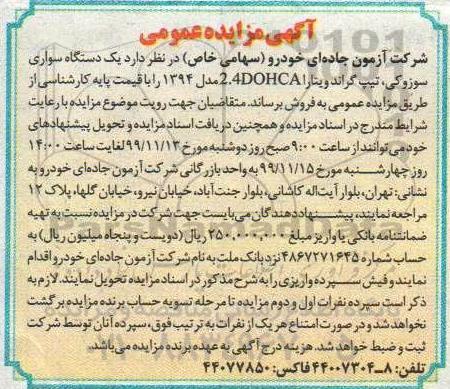 آگهی مزایده عمومی
شرکت آزمون جاده‌ای خودرو (سهامی خاص) در نظر دارد یک دستگاه سواری
سوزوکی، تیپ گراند ویتارا 2.4DOHCA مدل ۱۳۹۴ را با قیمت پایه کارشناسی از
طریق مزایده عمومی به فروش برساند. متقاضیان جهت رویت موضوع مزایده با رعایت
شرایط مندرج در اسناد مزایده و همچنین دریافت اسناد مزایده و تحویل پیشنهادهای
خود می‌توانند از ساعت ۹:۰۰ صبح روز دوشنبه مورخ ۹۹/۱۱/۱۳ لغایت ساعت ۱۴:۰۰
روز چهارشنبه مورخ ۹۹/۱۱/۱۵ به واحد بازرگانی شرکت آزمون جاده‌ای خودرو به
نشانی: تهران، بلوار آیت‌اله کاشانی، بلوار جنت‌آباد، خیابان نیرو، خیابان گلها، پلاک ۱۲
مراجعه نمایند، پیشنهاددهندگان می‌بایست جهت شرکت در مزایده نسبت به تهیه
ضمانتنامه بانکی یا واریز مبلغ ۲۵۰,۰۰۰,۰۰۰ ریال (دویست و پنجاه میلیون ریال) به
حساب شماره ۴۸۶۷۲۷۱۶۴۵ نزد بانک ملت به نام شرکت آزمون جاده‌ای خودرو اقدام
نمایند و فیش سپرده واریزی را به شرح مذکور در اسناد مزایده تحویل نمایند. لازم به
ذکر است سپرده نفرات اول و دوم مزایده تا مرحله تسویه حساب برنده مزایده برگشت
نخواهد شد و در صورت امتناع هر یک از نفرات به ترتیب فوق، سپرده آنان توسط شرکت
ثبت و ضبط خواهد شد. هزینه درج آگهی به عهده برنده مزایده می‌باشد.
تلفن: ۸-۴۴۰۰۷۳۰۴ فاکس: ۴۴۰۷۷۸۵۰